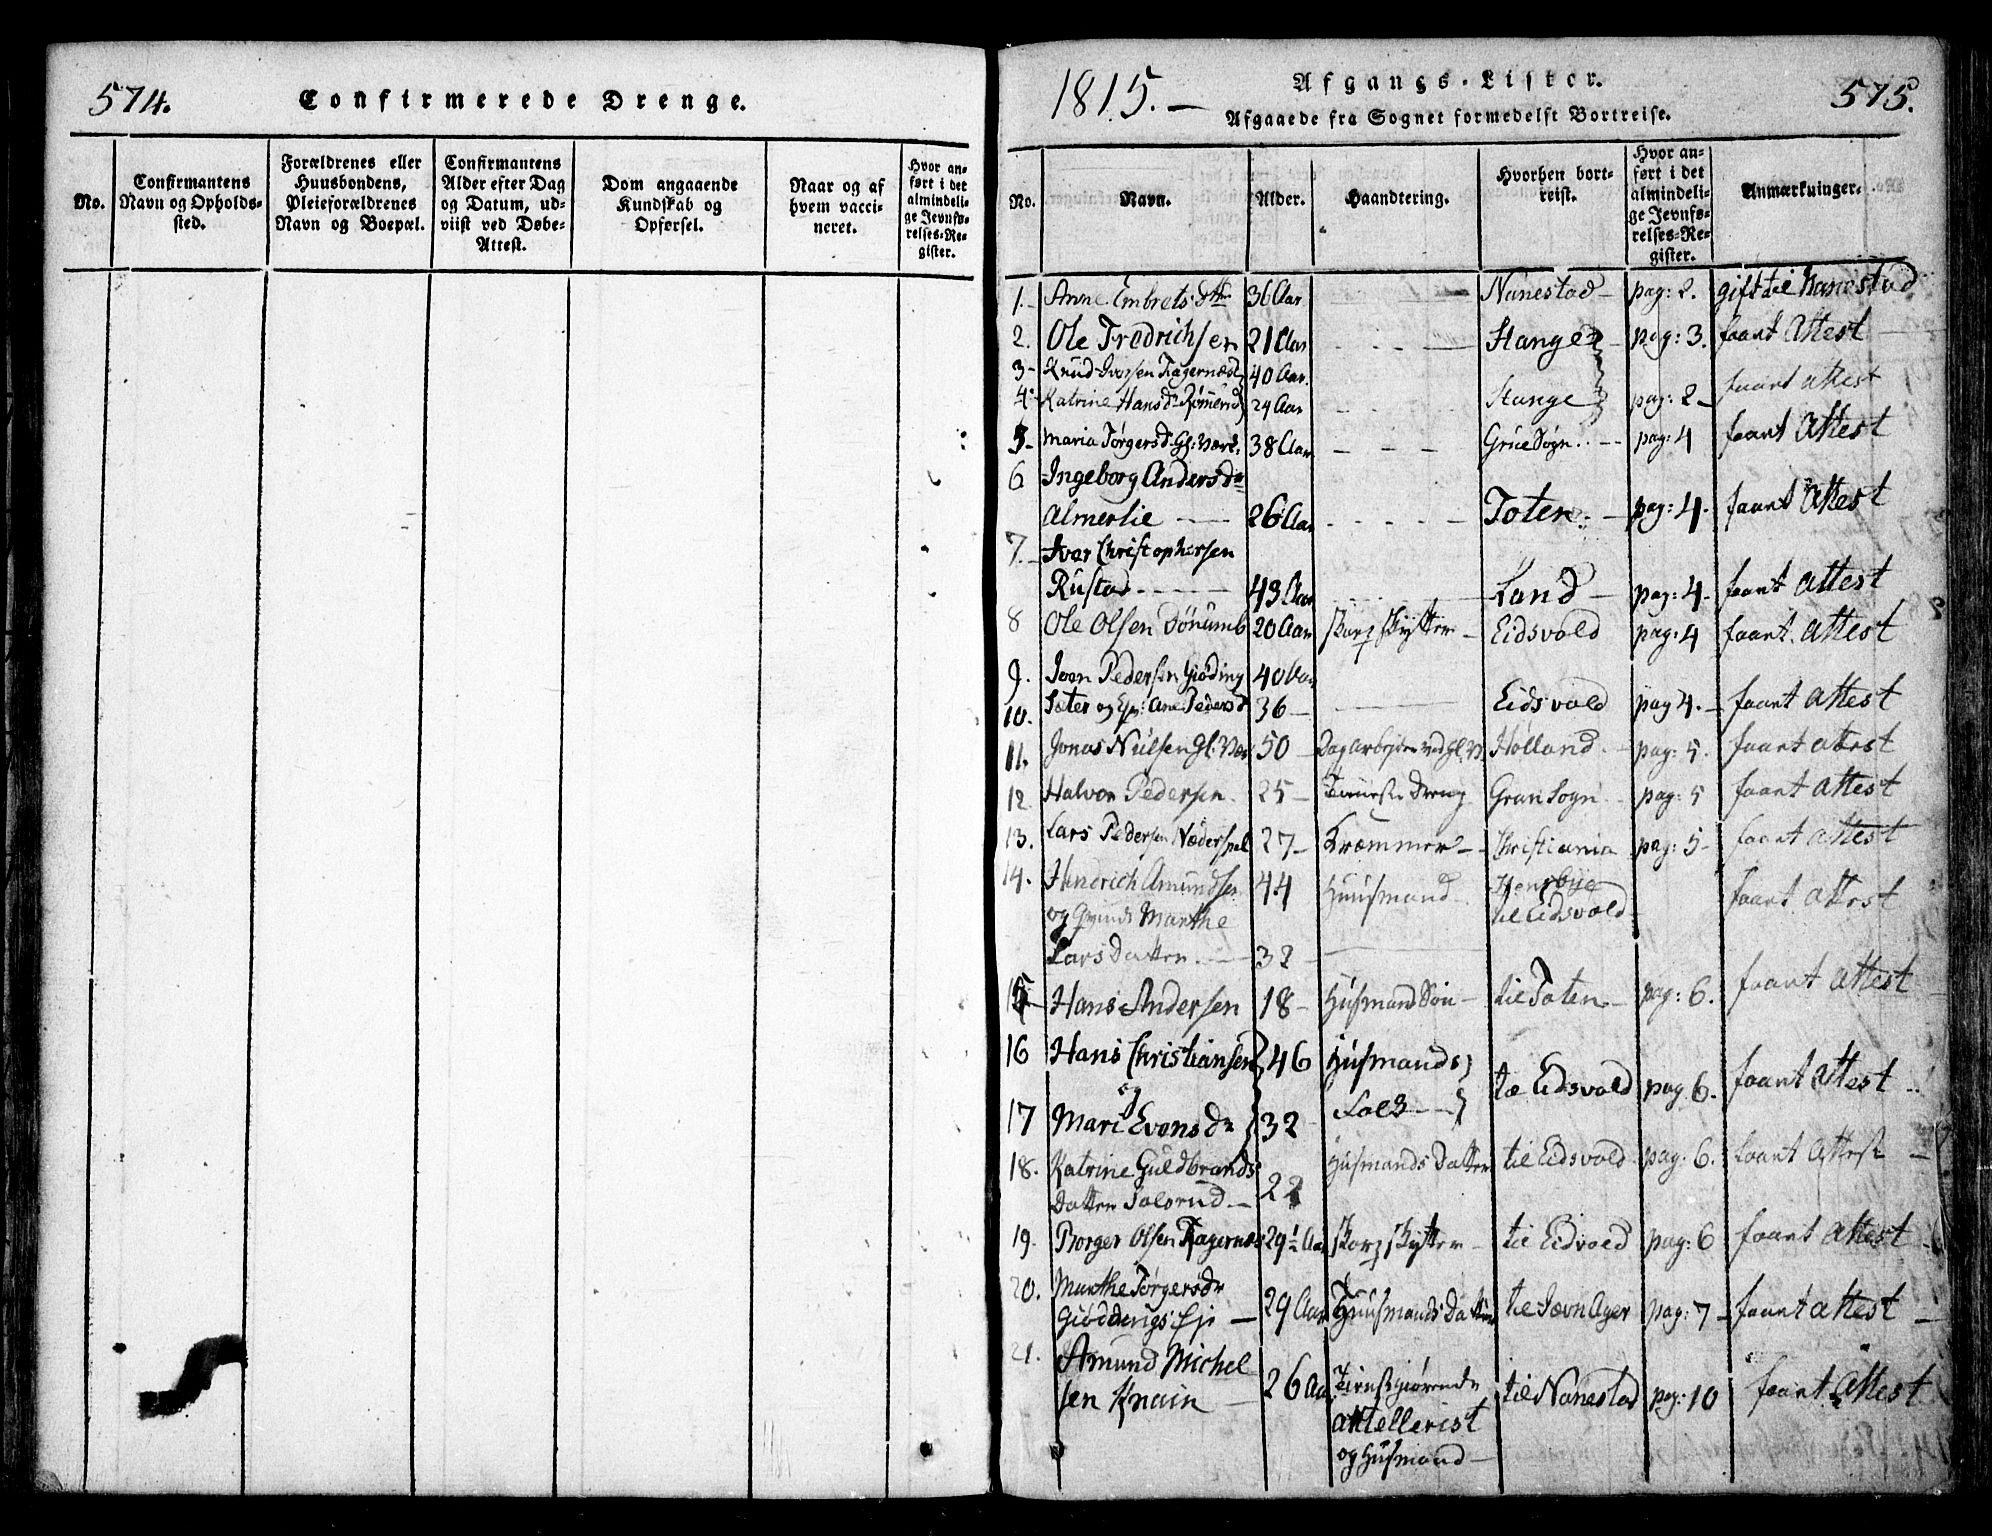 574.
Confirmerede Drenge.
No.
Confirmantens Navn og Opholds-sted.
Forældrenes eller Huusbondens, Pleieforældrenes Navn og Boepæl.
Confirmantens Alder efter Dag og Datum, ud-viist ved Døbe-Attest.
Dom angaaende Kundskab og Opførsel.
Naar og af hvem vacci-neret.
Hvor an-ført i det almindeli-ge Jevnfø-relses-Re-gister.
1815.
Afgangs-Lister.
575.
Afgaaede fra Sognet formedelst Bortreise.
No.
Navn.
Alder.
Haandtering.
Hvorhen bort-reist.
Hvor an-ført i det almindeli-ge Jevnfø-relses-Re-gister.
Anmærkninger.
1. Anne Embrets dtr 36 Aar Nanestad pag: 2. gift til Nanestad
2. Ole Fredrichsen 21 Aar Stange pag: 3. faart Attest
3 Knud Ivorsen Fagernæs 40 Aar.
4 Katrine Hans dr 24 Aar Stange pag: 2 faart attest
5 Maria Jørgers d. Gl: Værk. 38 Aar Grue Sogn pag: 4 faart Attest
6 Ingeborg Anders dr
Almerlie 26 Aar Toten pag: 4. faart Attest
7. Ivar Christophersen
Rustad 43 Aar Land pag: 4. faart attest
8 Ole Olsen Dønumb 20 Aar Eidsvold pag: 4 faart attest
9. Iven Pedersen Giøding 40 Aar
10. Sæter og Ane Peders d 36 Eidsvold pag 4. faart attest
11. Jonas Nielsen Gl: Vær 50 Dag Arbejder ved Gl. V. Holland pag: 5. faart attest
12 Halvor Pedersen 25 Tieneste Dreng Gran Sogn pag: 5 faart attest
13. Lars Pedersen 27 Kræmmer Christiania pag: 5 faart attest
14. Hendrich Amundsen 44 Huusmand
og Qvinde Marthe til Eidsvold faart Attest
Lars Datter 32
15 Hans Andersen 18 Husmand Søn til Toten pag: 6. faart attest
16 Hans Christiansen 46 Husmands
og
Folk til Eidsvold pag 6. faart attest
17 Mari Evens dr 32
18. Katrine Guldbrands Husmands Datter til Eidsvold pag: 6. faart Attest
Datter 22
19. Borger Olsen Fagernæs 29½ Aar til Eidvold pag: 6 faart attest
20. Marthe Jørgers dr
Gióddengs Eje 29 Aar Huusmands Datter til pag: 7 faart attest
21. Amund Michel
sen Knain 26 Aar Tienstgiørende til Nanestad pag: 10 faart attest
attellerist
og Husmand